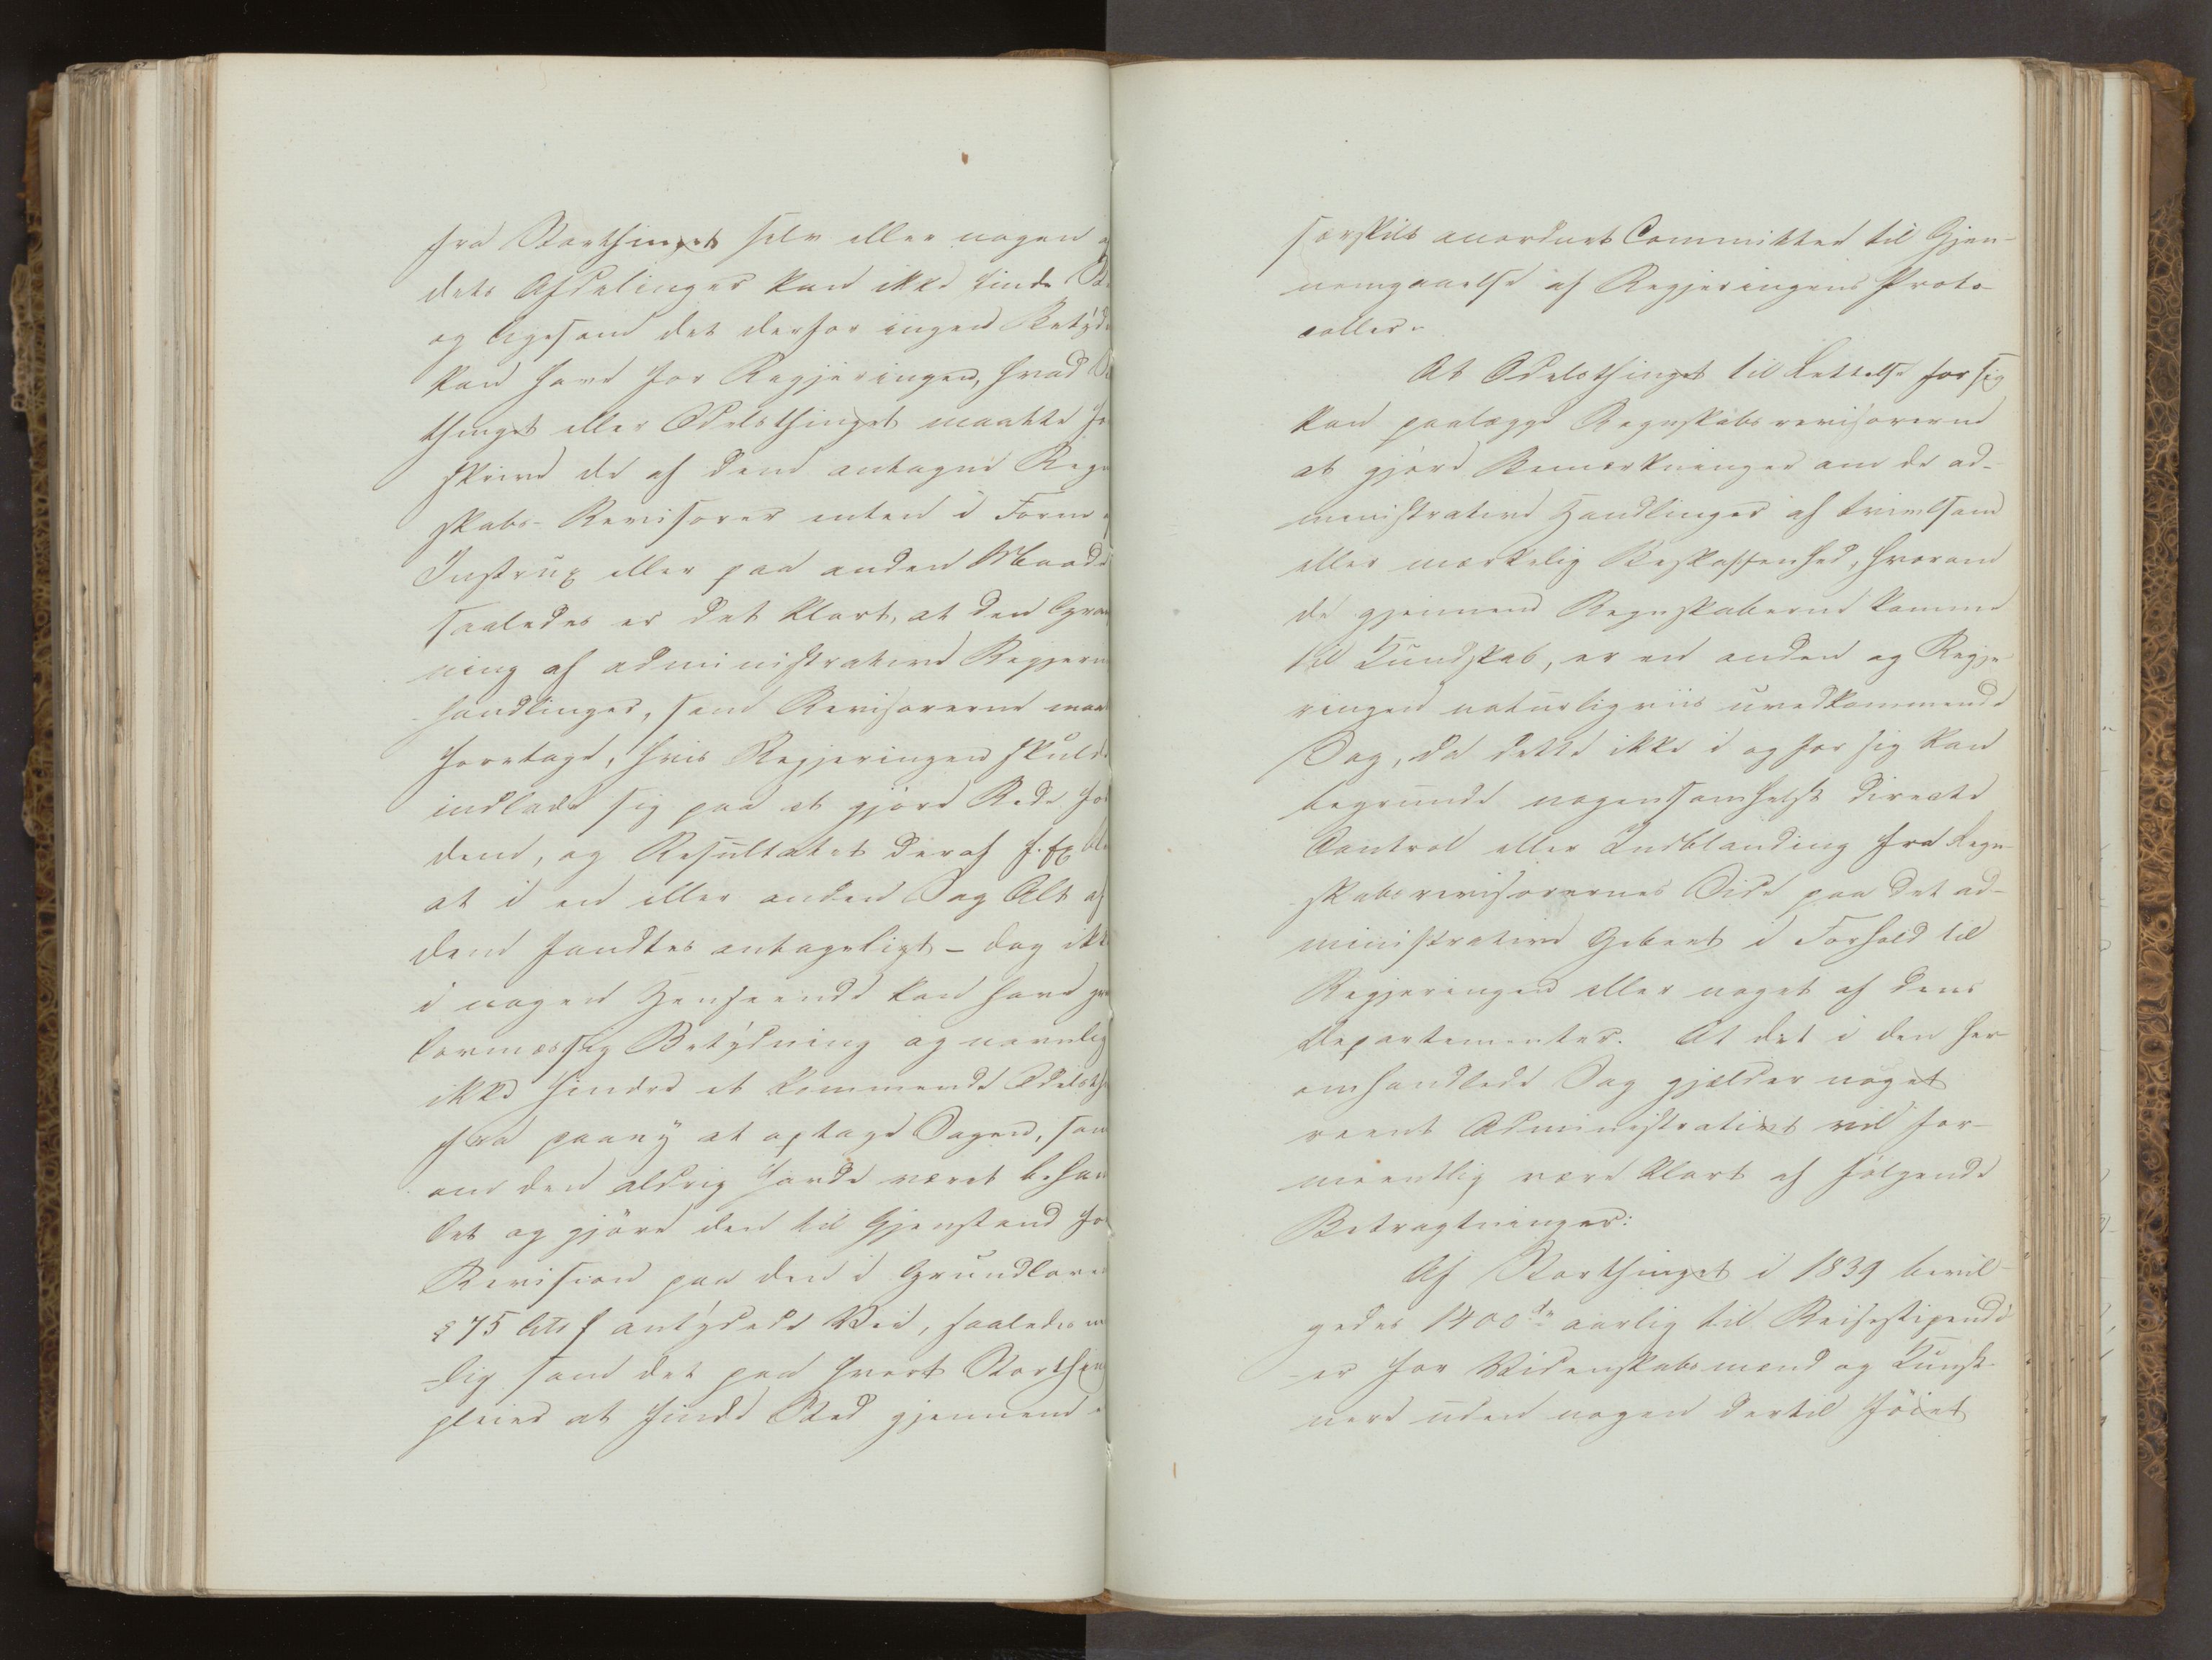 fra Storthinget selv eller nogen
dets Afdelinger kan ikke finde
og ligesom det derfor ingen Betyd
kan have for Regjeringen, hvad
thinget eller Odelsthinget maatte
skrive de af dem antagne Regn
skabs-Revisorer enten i Form
Instrux eller paa anden Maade
saaledes er det klart, at den Grans
ning af administrative Regjerin
handlinger, som Revisorerne maat
foretage, hvis Regjeringen skulde
indlade sig paa at gjöre Rede for
dem, og Resultatet deraf f. Ex
at i en eller anden Sag Alt af
dem fandtes antageligt – dog ikke
i nogen Henseende kan have
lovmæssig Betydning og navnlig
ikke hindre et kommende Odelsth
fra paany at optage Sagen, som
om den aldrig havde været behan
let og gjöre den til Gjenstand for
Revision paa den i Grundlovens
§ 75 lit. f antydede Vei, saaledes
lig som det paa hvert Storthing
pleier at finde Sted gjennem
særskilt anordnet Committee til Gjen-
nemgaaelse af Regjeringens Proto-
coller.
At Odelsthinget til Lettelse for sig
kan paalægge Regnskabsrevisorerne
at gjöre Bemærkninger om de ad-
ministrative Handlinger af tvivlsom
eller mærkelig Beskaffenhed, hvorom
de gjennem Regnskaberne komme
til Kundskab, er en anden og Regje-
ringen naturligviis uvedkommende
Sag, da dette ikke i og for sig kan
begrunde nogensomhelst directe
Control eller Indblanding fra Regn-
skabsrevisorernes Side paa det ad-
ministrative Gebeet i Forhold til
Regjeringen eller noget af dens
Departementer. At det i den her
omhandlede Sag gjælder noget
reent Administrativt vil for-
meentlig være klart af følgende
Betragtninger:
Af Storthinget i 1839 bevil-
gedes 1400 dr aarlig til Reisestipendi-
er for Videnskabsmænd og Kunst-
nere uden nogen dertil föiet